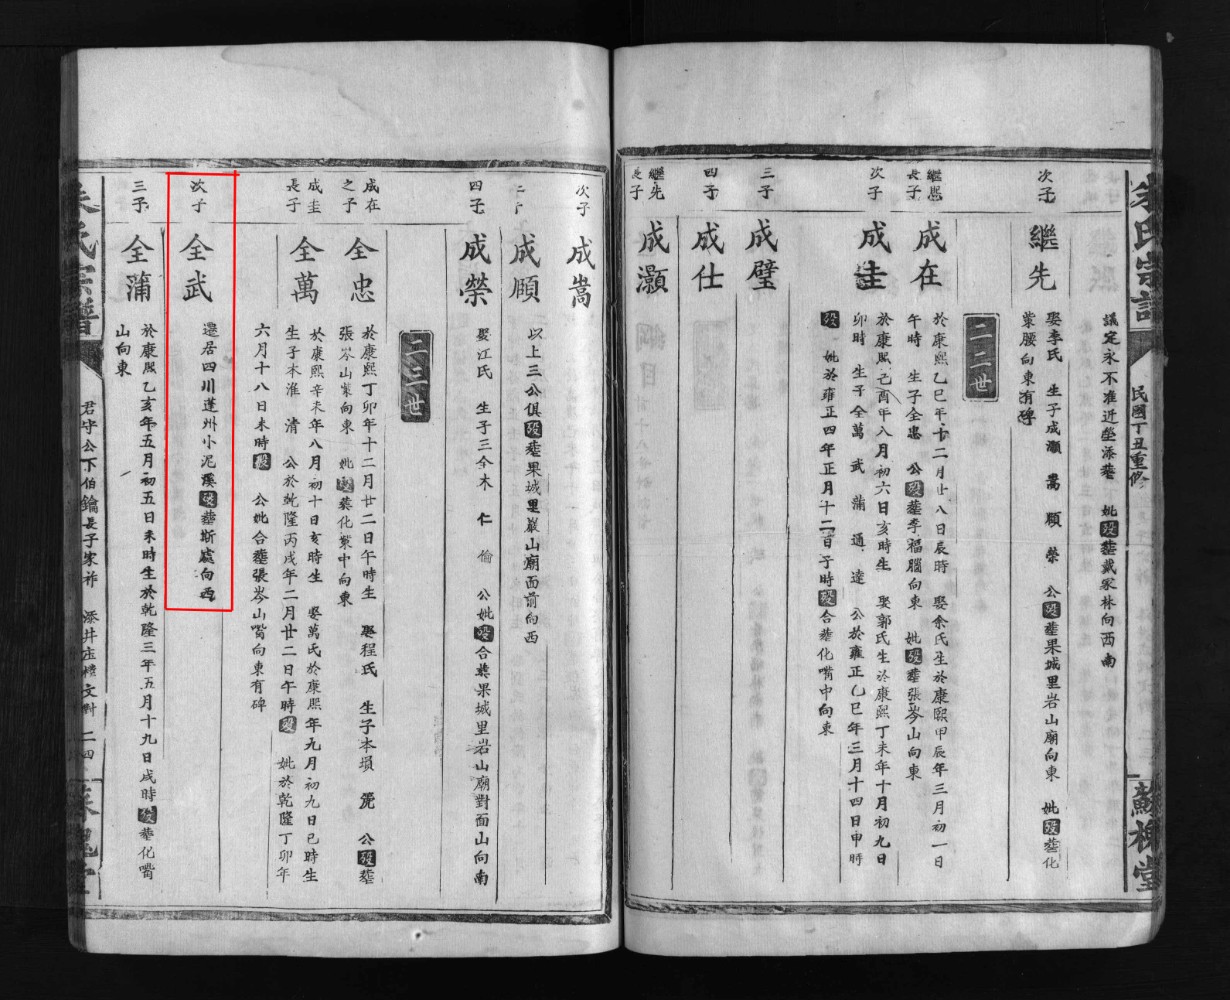 朱氏宗譜
民國丁丑重修
蘇槐堂
議定永不准近塋添葬 妣歿葬戴冢林向西南
次子
繼先
娶李氏 生子成灝 嵩 頎 榮 公歿葬果城里岩山廟向東 妣歿葬化
葉腰向東有碑
二二世
繼恩長子
成在
於康熙乙巳年十二月廿八日辰時 娶余氏生於康熙甲辰年三月初一日
午時 生子全忠 公歿葬李福腦向東 妣歿葬張岑山向東
次子
成圭
於康熙己酉年八月初六日亥時生 娶郭氏生於康熙丁未年十月初九日
卯時 生子全萬 武 蒲 通 達 公於雍正乙巳年三月十四日申時
歿 妣於雍正四年正月十二日子時歿合葬化嘴中向東
三子
成璧
四子
成仕
繼先長子
成灝
次子
成嵩
三子
成頎
以上三公俱歿葬果城里巖山廟面前向西
四子
成榮
娶江氏 生子三全木 仁 倫 公妣歿合葬果城里岩山廟對面山向南
二三世
成在之子
全忠
於康熙丁卯年十二月廿二日午時生 娶程氏 生子本塤 篪 公歿葬
張岑山葉向東 妣歿葬化葉中向東
成圭長子
全萬
於康熙辛未年八月初十日亥時生 娶萬氏於康熙 年九月初九日巳時生
生子本淮 清 公於乾隆丙戌年二月廿二日午時歿 妣於乾隆丁卯年
六月十八日未時歿 公妣合葬張岑山嘴向東有碑
次子
全武
遷居四川蓬州小泥溪歿葬斯處向西
三子
全蒲
於康熙乙亥年五月初五日未時生於乾隆三年五月十九日戌時歿葬化嘴
山向東
朱氏宗譜
君守公下伯鑰長子家祚 添井庄 文 二四